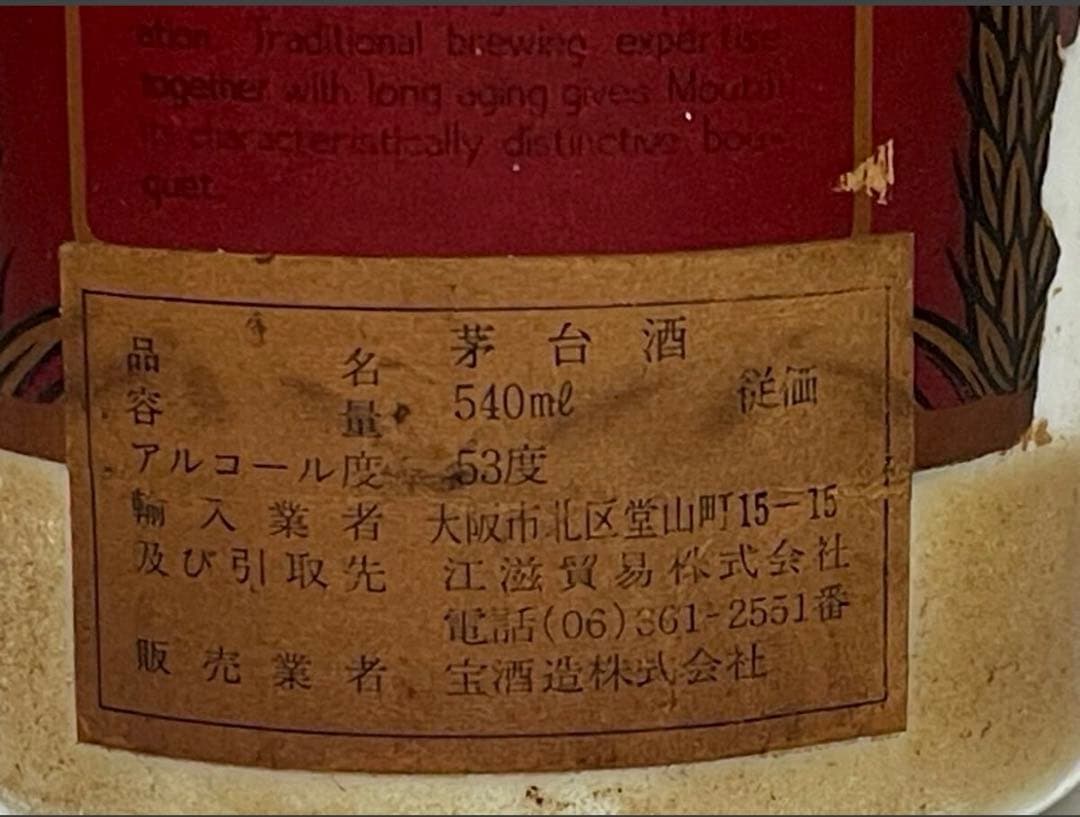 ation. Traditional brewing expertise
together with long aging gives Moutai
its characteristically distinctive bou-
quet.
品名 茅台酒
容量 540mℓ 従価
アルコール度 53度
輸入業者 大阪市北区堂山町15-15
及び引取先 江滋貿易株式会社
電話(06)361-2551番
販売業者 宝酒造株式会社